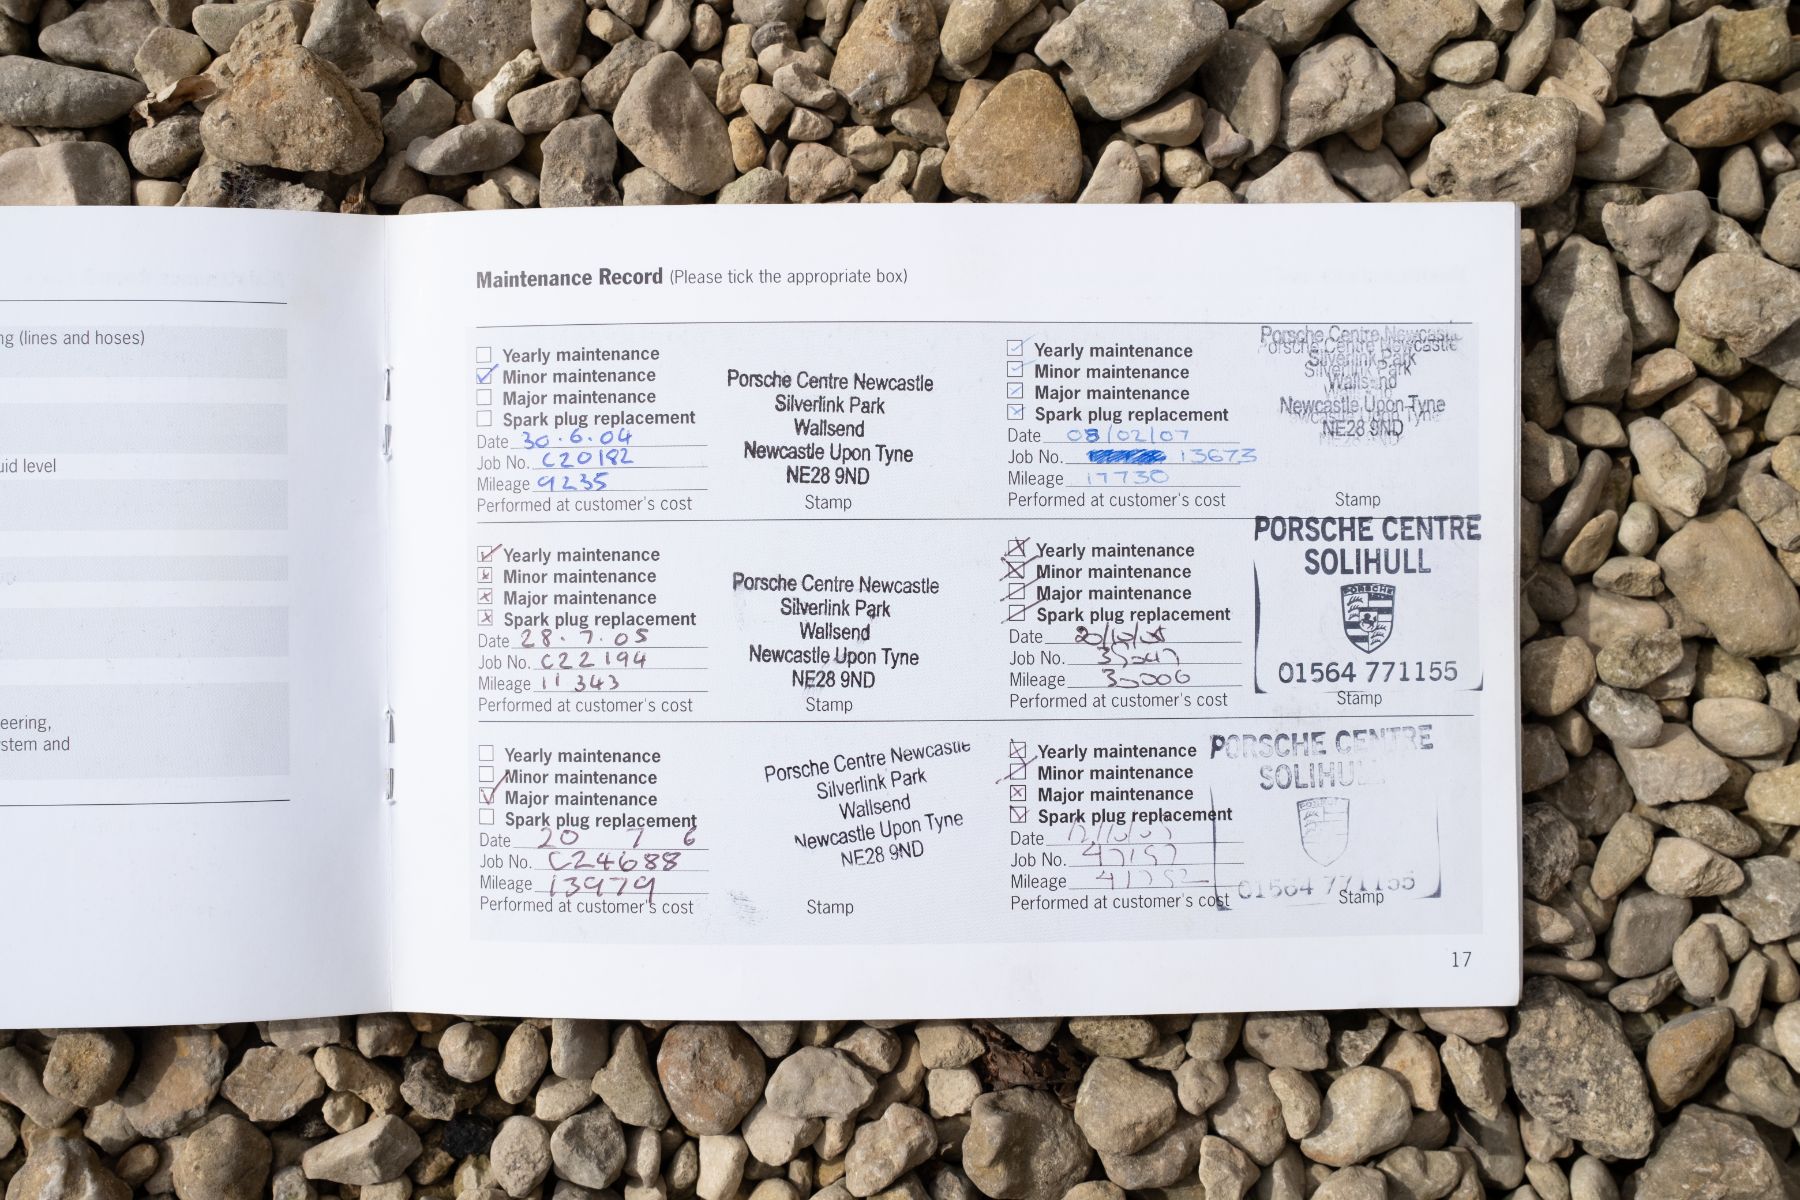 ng (lines and hoses)
uid level
eering,
stem and
Maintenance Record (Please tick the appropriate box)
Yearly maintenance
Minor maintenance
Major maintenance
Spark plug replacement
Date 30.6.04
Job No. C20182
Mileage 9235
Performed at customer's cost
Porsche Centre Newcastle
Silverlink Park
Wallsend
Newcastle Upon Tyne
NE28 9ND
Stamp
Yearly maintenance
Minor maintenance
Major maintenance
Spark plug replacement
Date 08/02/07
Job No. 13673
Mileage 17730
Performed at customer's cost
Porsche Centre Newcastle
Silverlink Park
Wallsend
Newcastle Upon Tyne
NE28 9ND
Stamp
Yearly maintenance
Minor maintenance
Major maintenance
Spark plug replacement
Date 28.7.05
Job No. C22194
Mileage 11343
Performed at customer's cost
Porsche Centre Newcastle
Silverlink Park
Wallsend
Newcastle Upon Tyne
NE28 9ND
Stamp
Yearly maintenance
Minor maintenance
Major maintenance
Spark plug replacement
Date
Job No.
Mileage
Performed at customer's cost
PORSCHE CENTRE
SOLIHULL
PORSCHE
01564 771155
Stamp
Yearly maintenance
Minor maintenance
Major maintenance
Spark plug replacement
Date 20 7 6
Job No. C24688
Mileage 13979
Performed at customer's cost
Porsche Centre Newcastle
Silverlink Park
Wallsend
Newcastle Upon Tyne
NE28 9ND
Stamp
Yearly maintenance
Minor maintenance
Major maintenance
Spark plug replacement
Date
Job No.
Mileage
Performed at customer's cost
PORSCHE CENTRE
SOLIHULL
01564 771155
Stamp
17